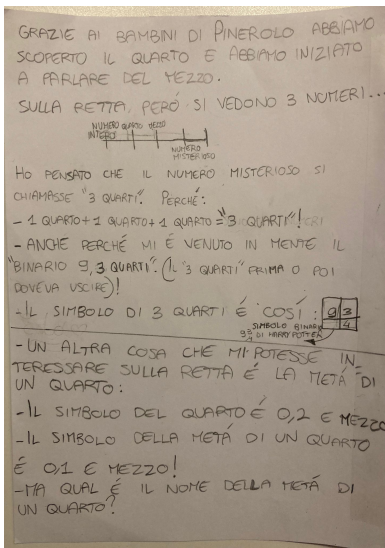 GRAZIE AI BAMBINI DI PINEROLO ABBIAMO
SCOPERTO IL QUARTO E ABBIAMO INIZIATO
A PARLARE DEL MEZZO.
SULLA RETTA, PERÓ SI VEDONO 3 NUMERI...
NUMERO INTERO QUARTO MEZZO
NUMERO MISTERIOSO
HO PENSATO CHE IL NUMERO MISTERIOSO SI
CHIAMASSE "3 QUARTI". PERCHÉ:
- 1 QUARTO + 1 QUARTO + 1 QUARTO = "3 QUARTI"!
- ANCHE PERCHÉ MI É VENUTO IN MENTE IL
"BINARIO 9, 3 QUARTI". (IL "3 QUARTI" PRIMA O POI
DOVEVA USCIRE)!
- IL SIMBOLO DI 3 QUARTI É COSÍ: 9 3
4
SIMBOLO BINARIO
9 3/4 DI HARRY POTTER
- UN ALTRA COSA CHE MI POTESSE IN=
TERESSARE SULLA RETTA É LA METÁ DI
UN QUARTO:
- IL SIMBOLO DEL QUARTO É 0,2 E MEZZO
- IL SIMBOLO DELLA METÁ DI UN QUARTO
É 0,1 E MEZZO!
- MA QUAL É IL NOME DELLA METÁ DI
UN QUARTO?